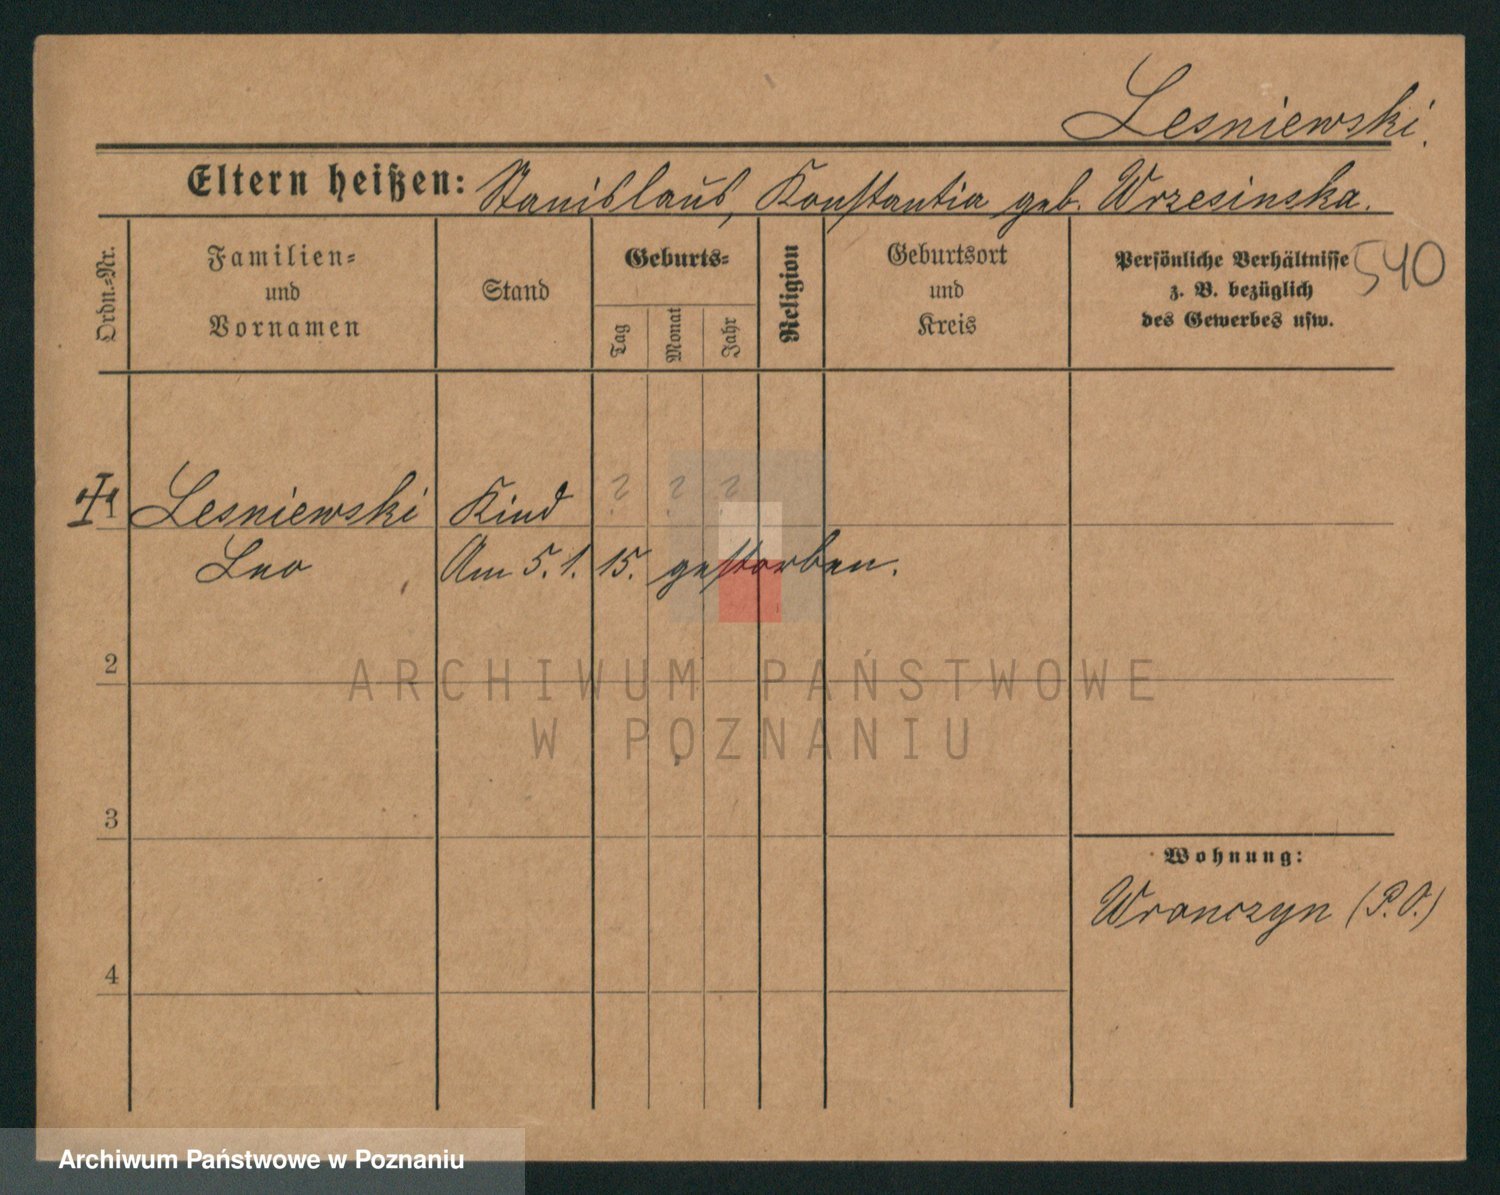 Lesniewski.
Eltern heißen: Stanislaus, Konstantia geb. Wrzesinska.
Ordn.-Nr.
Familien-
und
Vornamen
Stand
Geburts-
Tag
Monat
Jahr
Religion
Geburtsort
und
Kreis
Persönliche Verhältnisse
z. B. bezüglich
des Gewerbes usw.
540
1 Lesniewski Kind ? ? ?
Leo Am 5. 1. 15. gestorben.
2
ARCHIWUM PAŃSTWOWE
W POZNANIU
3
Wohnung:
Wronczyn (P.O.)
4
Archiwum Państwowe w Poznaniu